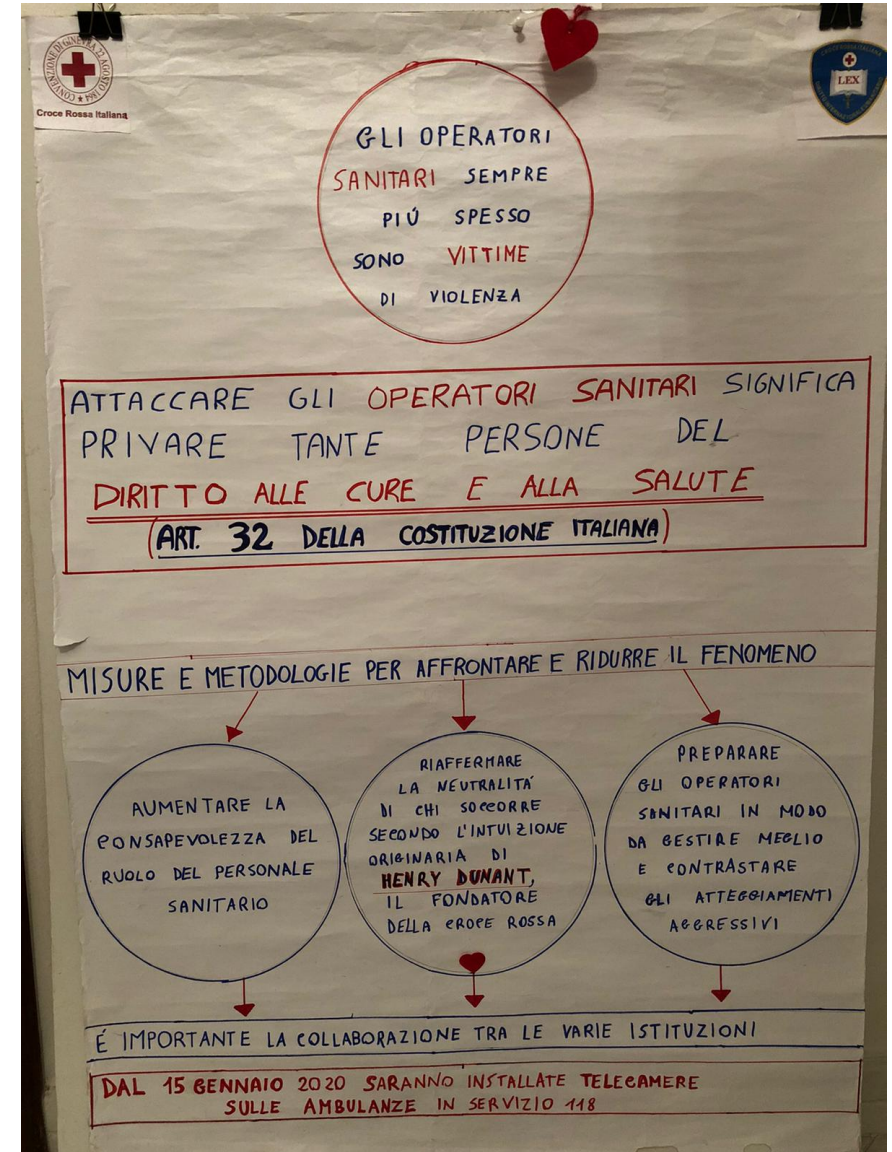 CONVENZIONE DI GINEVRA 22 AGOSTO 1864
Croce Rossa Italiana
LEX
GLI OPERATORI
SANITARI SEMPRE
PIÚ SPESSO
SONO VITTIME
DI VIOLENZA
ATTACCARE GLI OPERATORI SANITARI SIGNIFICA
PRIVARE TANTE PERSONE DEL
DIRITTO ALLE CURE E ALLA SALUTE
(ART. 32 DELLA COSTITUZIONE ITALIANA)
MISURE E METODOLOGIE PER AFFRONTARE E RIDURRE IL FENOMENO
AUMENTARE LA
CONSAPEVOLEZZA DEL
RUOLO DEL PERSONALE
SANITARIO
RIAFFERMARE
LA NEUTRALITÁ
DI CHI SOCCORRE
SECONDO L'INTUIZIONE
ORIGINARIA DI
HENRY DUNANT,
IL FONDATORE
DELLA CROCE ROSSA
PREPARARE
GLI OPERATORI
SANITARI IN MODO
DA GESTIRE MEGLIO
E CONTRASTARE
GLI ATTEGGIAMENTI
AGGRESSIVI
É IMPORTANTE LA COLLABORAZIONE TRA LE VARIE ISTITUZIONI
DAL 15 GENNAIO 2020 SARANNO INSTALLATE TELECAMERE
SULLE AMBULANZE IN SERVIZIO 118